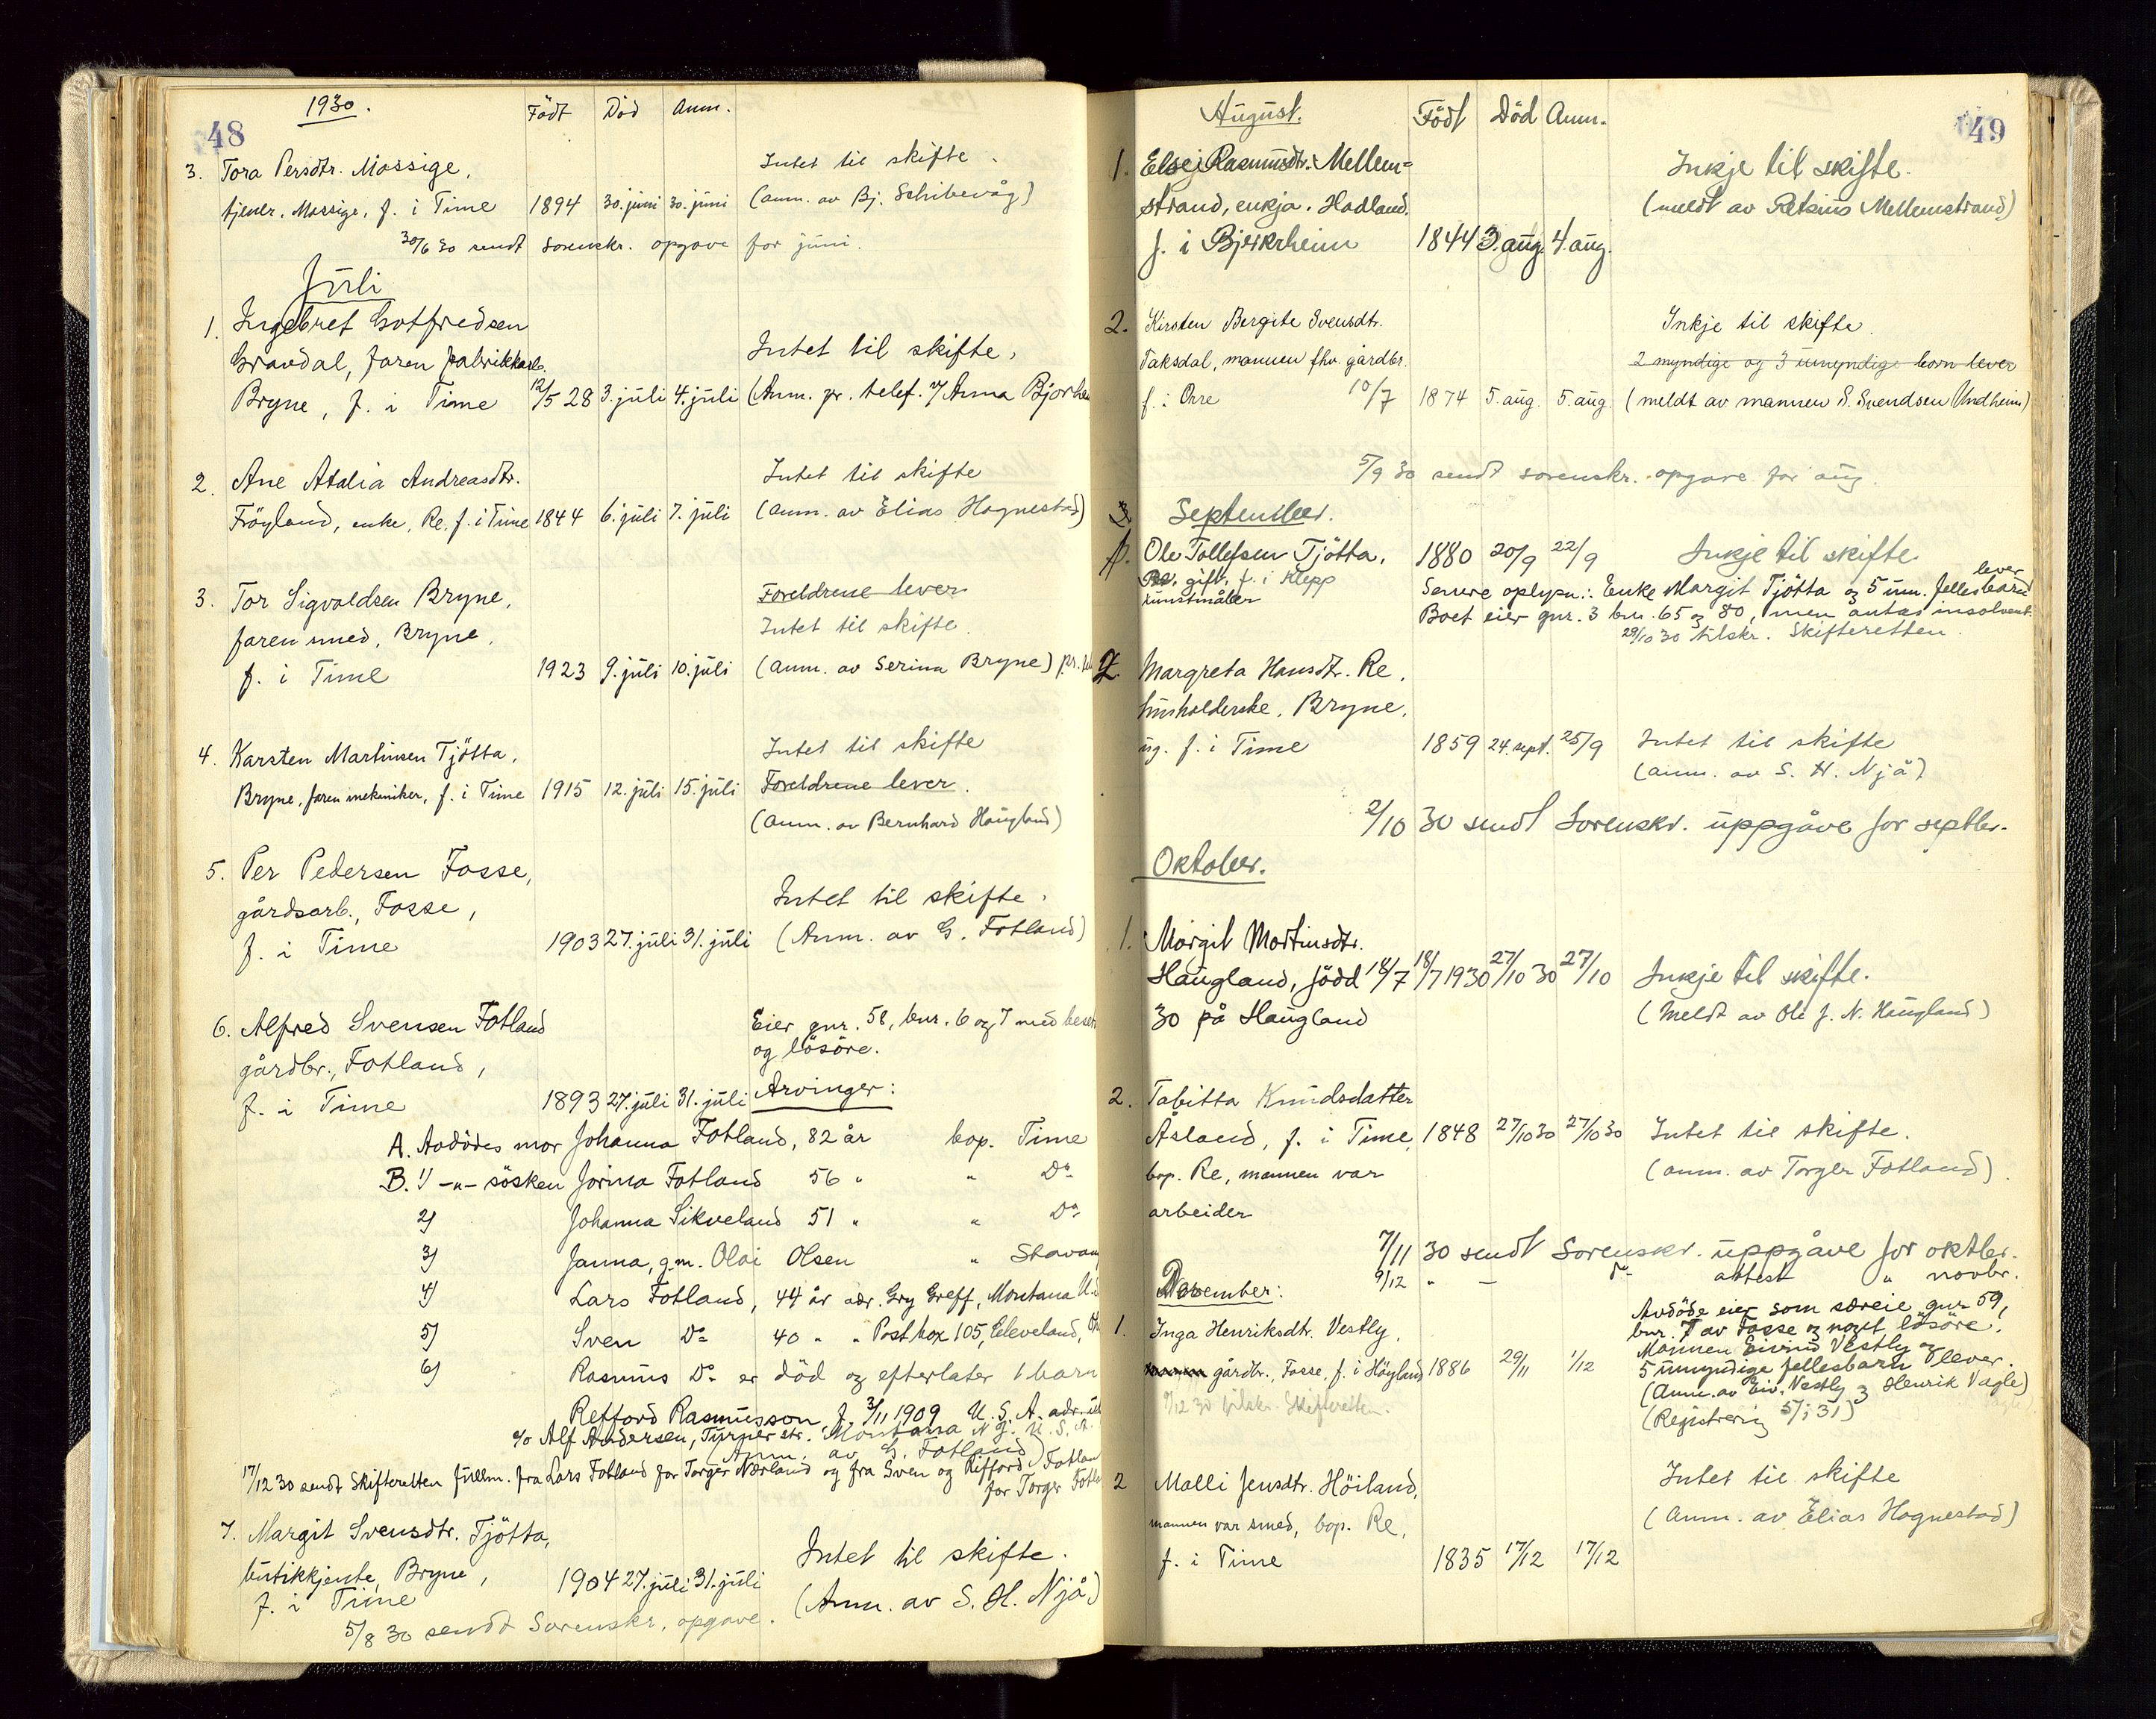 48
1930.
Född Död Anm.
3. Tora Persdtr. Mossige, Intet til skifte.
tjener, Mossige, f. i Time 1894 30. juni 30. juni (anm. av Bj. Schibevåg)
30/6 30 sendt sorenskr. opgave for juni.
Juli
1. Ingebret Gotfredsen
Gravdal, faren fabrikkarb. Intet til skifte,
Bryne, f. i Time 12/5 28 3. juli 4. juli (Anm. pr. telef. v/ Anna
2. Ane Atalia Andreasdtr. Intet til skifte
Fröyland, enke, Re, f. i Time 1844 6. juli 7. juli (anm. av Elias Hognestad)
3. Tor Sigvaldsen Bryne, Foreldrene lever
faren smed, Bryne, Intet til skifte.
f. i Time 1923 9. juli 10. juli (anm. av Serina Bryne)
4. Karsten Martinsen Tjötta, Intet til skifte
Bryne, faren mekaniker, f. i Time 1915 12. juli 15. juli Foreldrene lever.
(anm. av Bernhard Haugland)
5. Per Pedersen Fosse,
gårdsarb., Fosse, Intet til skifte.
f. i Time 1903 27. juli 31. juli (Anm. av G. Fotland)
6. Alfred Svensen Fotland Eier gnr. 58, bnr. 6 og 7 med
gårdbr., Fotland, og lösöre.
f. i Time 1893 27. juli 31. juli Arvinger:
A. Avdödes mor Johanna Fotland, 82 år bop. Time
B. 1) -"- sösken Jorina Fotland 56 " " Do
2) Johanna Sikveland 51 " " Do
3) Janna, g.m. Olai Olsen "
4) Lars Fotland, 44 år adr. Gry Greff, Montana
5) Sven Do 40 " " Postbox 105, Cleveland,
6) Rasmus Do er död og efterlater 1 barn
Refford Rasmusson f. 3/11 1909 U.S.A. adr.
c/o Alf Andersen, Turner str. Montana N. J. U. S. A.
Anm. av G. Fotland)
17/12 30 sendt Skifteretten fullm. fra Lars Fotland for Torger Nærland og fra Sven og Refford
for Torger
7. Margit Svensdtr. Tjötta,
butikkjente, Bryne, Intet til skifte.
f. i Time 1904 27. juli 31. juli (Anm. av S. H. Njå)
5/8 30 sendt Sorenskr. opgave.
49
August.
Född Död Anm.
1. Else Rasmusdtr. Mellem- Inkje til skifte.
strand, enkja, Hadland. (meldt av Retsius Mellemstrand)
f. i Bjerkreim 1844 3. aug. 4. aug.
2. Kirsten Bergite Svensdtr. Inkje til skifte.
Taksdal, mannen fhv. gårdbr. 2 myndige og 3 umyndige born lever
f. i Orre 10/7 1874 5. aug. 5. aug. (meldt av mannen S. Svendsen Undheim)
5/9 30 sendt sorenskr. opgave for aug.
September.
1. Ole Tollefsen Tjötta, 1880 20/9 22/9 Inkje til skifte
Re, gift, f. i Klepp Senere oplysn.: Enke Margit Tjötta og 5 um. fellesbarn lever
kunstmåler Boet eier gnr. 3 bnr. 65 og 80, men antas insolvent.
29/10 30 tilskr. Skifteretten.
2. Margreta Hansdtr. Re,
husholderske, Bryne,
ug. f. i Time 1859 24. sept. 25/9 Intet til skifte
(anm. av S. H. Njå)
2/10 30 sendt Sorenskr. uppgåve for septbr.
Oktober.
1. Margit Martinsdtr.
Haugland, född 18/7 18/7 1930 27/10 30 27/10 Inkje til skifte.
30 på Haugland (Meldt av Ole J. N. Haugland)
2. Tabitta Knudsdatter
Åsland, f. i Time, 1848 27/10 30 27/10 30 Intet til skifte.
bop. Re, mannen var (anm. av Torger Fotland).
arbeider
7/11 30 sendt Sorenskr. uppgåve for oktbr.
9/12 " — do attest " novbr.
Desember:
1. Inga Henriksdtr. Vestly, Avdöde eier som særeie gnr 59,
bnr. 7 av Fosse og noget lösöre.
Mannen Eivind Vestly og
gårdbr., Fosse, f. i Höyland 1886 29/11 1/12 5 umyndige fellesbarn lever.
(Anm. av Eiv. Vestly og Henrik Vagle)
9/12 30 tilskr. Skifteretten. (Registrering 5/1 31)
2 Malli Jensdtr. Höiland, Intet til skifte
mannen var smed, bop. Re, (Anm. av Elias Hognestad)
f. i Time 1835 17/12 17/12